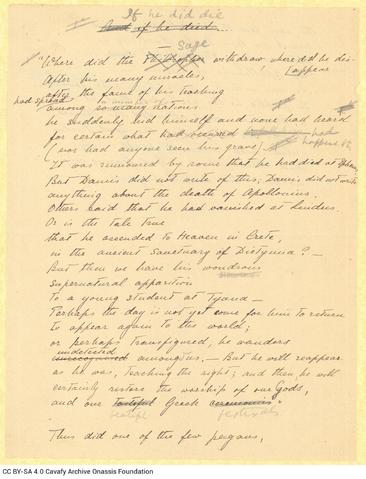 If he did die
And if he died
—
Sage
"Where did the Philosopher withdraw, where did he dis-
appear
After his many miracles,
after the fame of his teaching
had spread
among so many nations
he suddenly hid himself and none had heard
for certain what had occurred had
happened
(nor had anyone seen his grave)
It was rumoured by some that he had died at Ephesus
But Damis did not write of this; Damis did not write
anything about the death of Apollonius.
Others said that he had vanished at Lindus.
Or is the tale true
that he ascended to Heaven in Crete,
in the ancient Sanctuary of Dictynna? —
But then we have his wondrous
supernatural apparition
To a young student at Tyana —
Perhaps the day is not yet come for him to return
To appear again to the world;
or perhaps transfigured, he wanders
undetected
unrecognised among us. — But he will reappear
as he was, teaching the right; and then he will
certainly restore the worship of our Gods,
and our tasteful Greek ceremonies."
beautiful festivals
Thus did one of the few pagans,
CC BY-SA 4.0 Cavafy Archive Onassis Foundation